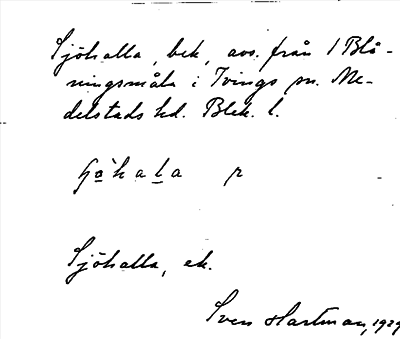 Sjöhalla, bek, avs. från 1 Blå-
ningsmåla i Tvings sn. Me-
delstads hd. Blek. l.
Sjöhalla, ek.
Sven Hartman, 1929